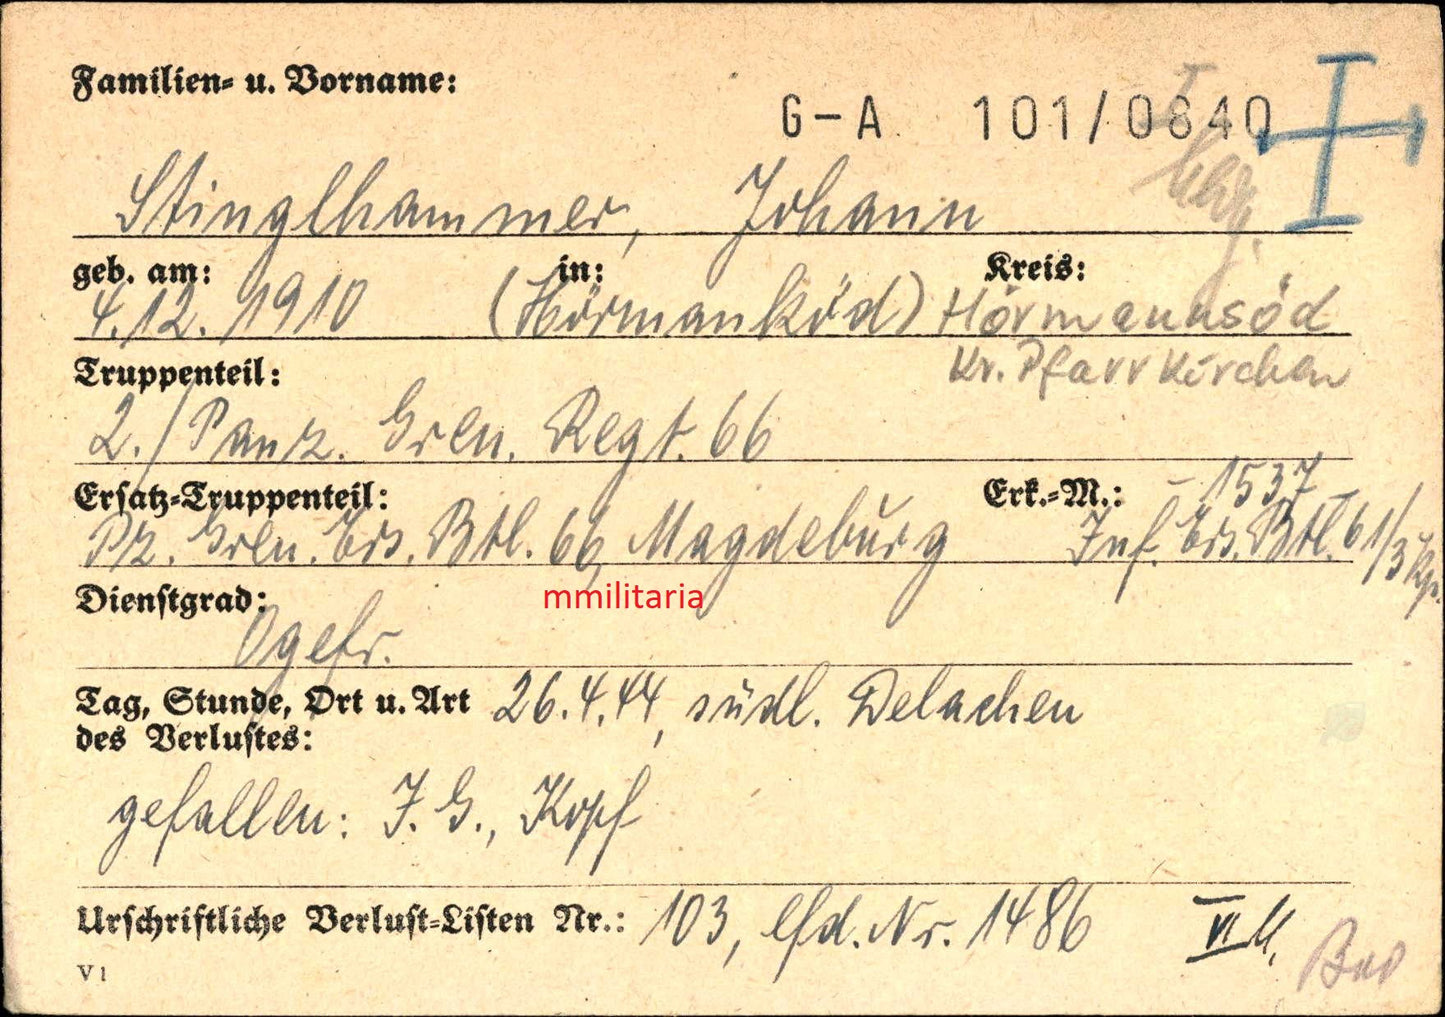 Familien- u. Vorname:
G-A 101/0840
Stinglhammer, Johann
geb. am: in: Kreis:
4.12.1910 (Hörmanköd) Hörmannsöd
Kr. Pfarrkirchen
Truppenteil:
2./Panz. Gren. Regt. 66
Ersatz-Truppenteil: Erk.-M.: – 1537 –
Pz. Gren. Ers. Btl. 66, Magdeburg Inf. Ers. Btl. 61/3 Kp.
Dienstgrad:
mmilitaria
Ogefr.
Tag, Stunde, Ort u. Art 26.4.44, südl. Delacheu
des Verlustes:
gefallen: I.G., Kopf
Urschriftliche Verlust-Listen Nr.: 103, lfd. Nr. 1486 VI
V 1